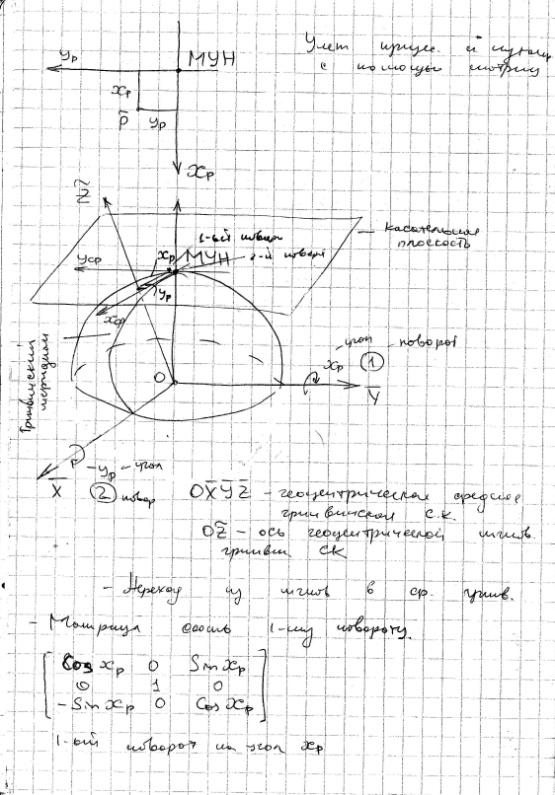 Учет прцес. и нутац
с помощью матриц
yр
МУН
xр
P̄
yр
xр
Z̃
касательная
плоскость
1-ый поворот
xр
МУН
2-й поворот
yср
yр
xср
Гринвический
меридиан
угол поворот
xр ①
O
Y̅
-yр - угол
X̅
② повор
OX̅Y̅Z̅ - геоцентрическая средняя
гринвичская С.К.
OZ̃ - ось геоцентрической мгнов.
гринвич СК
- Переход из мгнов в ср. гринв.
- Матрица соотв 1-му повороту.
Cos xр 0 Sin xр
0 1 0
-Sin xр 0 Cos xр
1-ый поворот на угол xр